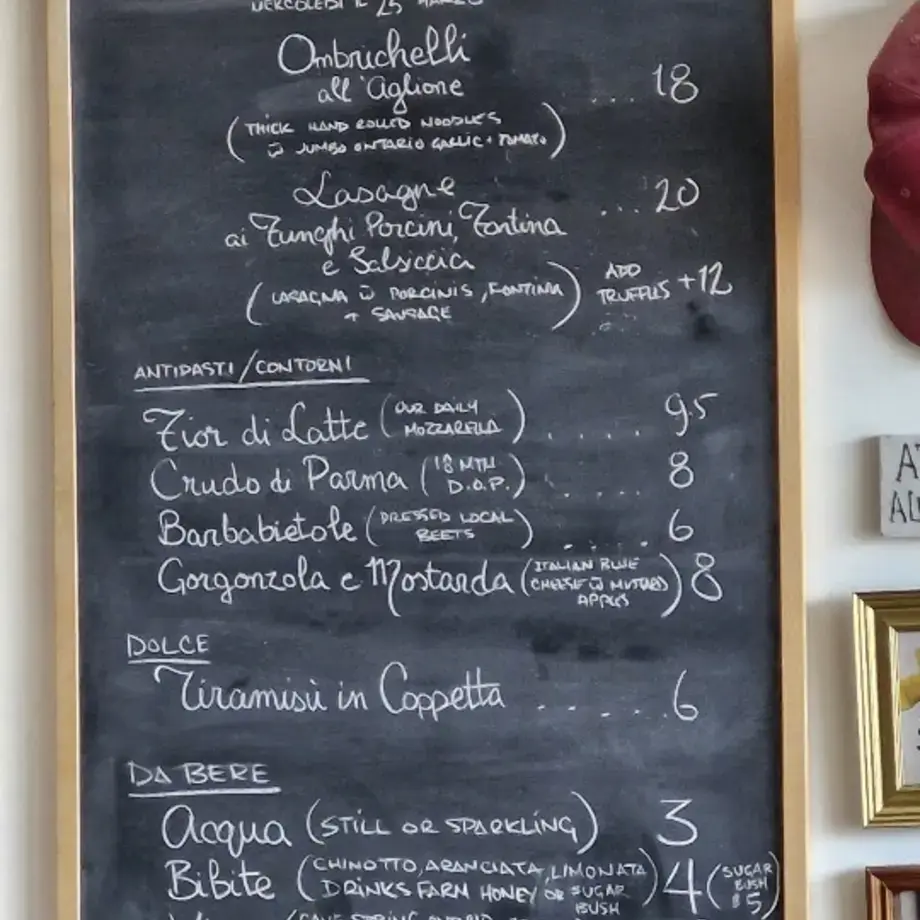 MERCOLEDI IL 25 MARZO
Ombrichelli
all'Aglione .... 18
(THICK HAND ROLLED NOODLES
W JUMBO ONTARIO GARLIC + TOMATO)
Lasagne ... 20
ai Funghi Porcini, Fontina
e Salsiccia
(LASAGNA W PORCINIS, FONTINA
+ SAUSAGE)
ADD
TRUFFLES +12
ANTIPASTI/CONTORNI
Fior di Latte (OUR DAILY MOZZARELLA) .... 9.5
Crudo di Parma (18 MTH D.O.P.) .... 8
Barbabietole (DRESSED LOCAL BEETS) .... 6
Gorgonzola e Mostarda (ITALIAN BLUE CHEESE W MUSTARD APPLES) 8
DOLCE
Tiramisù in Coppetta ..... 6
DA BERE
Acqua (STILL OR SPARKLING) 3
Bibite (CHINOTTO, ARANCIATA, LIMONATA DRINKS FARM HONEY OR SUGAR BUSH) 4 (SUGAR BUSH $5)